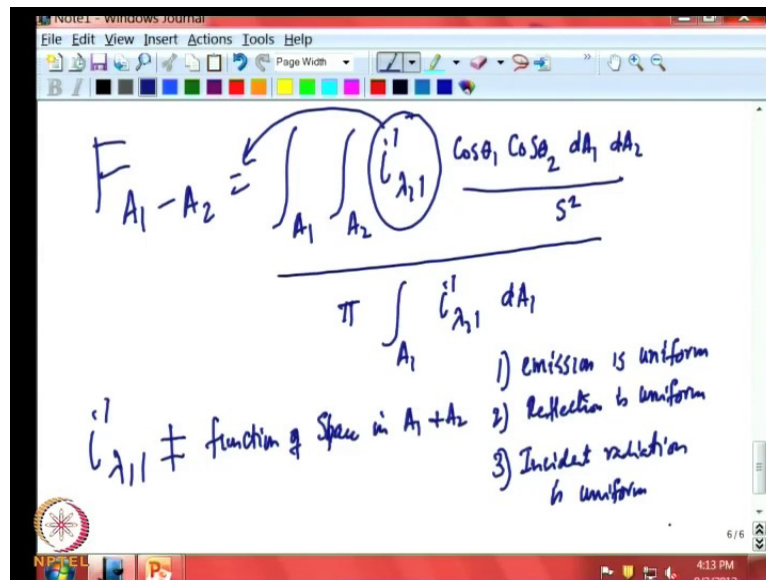 Note1 - Windows Journal
File Edit View Insert Actions Tools Help
Page Width
B I
F A1 - A2 = ∫A1 ∫A2 i'λ,1 cosθ1 cosθ2 dA1 dA2
S²
π ∫A1 i'λ,1 dA1
1) emission is uniform
i'λ,1 ≠ function of space in A1 + A2
2) Reflection is uniform
3) Incident radiation
is uniform
6/6
NPTEL
4:13 PM